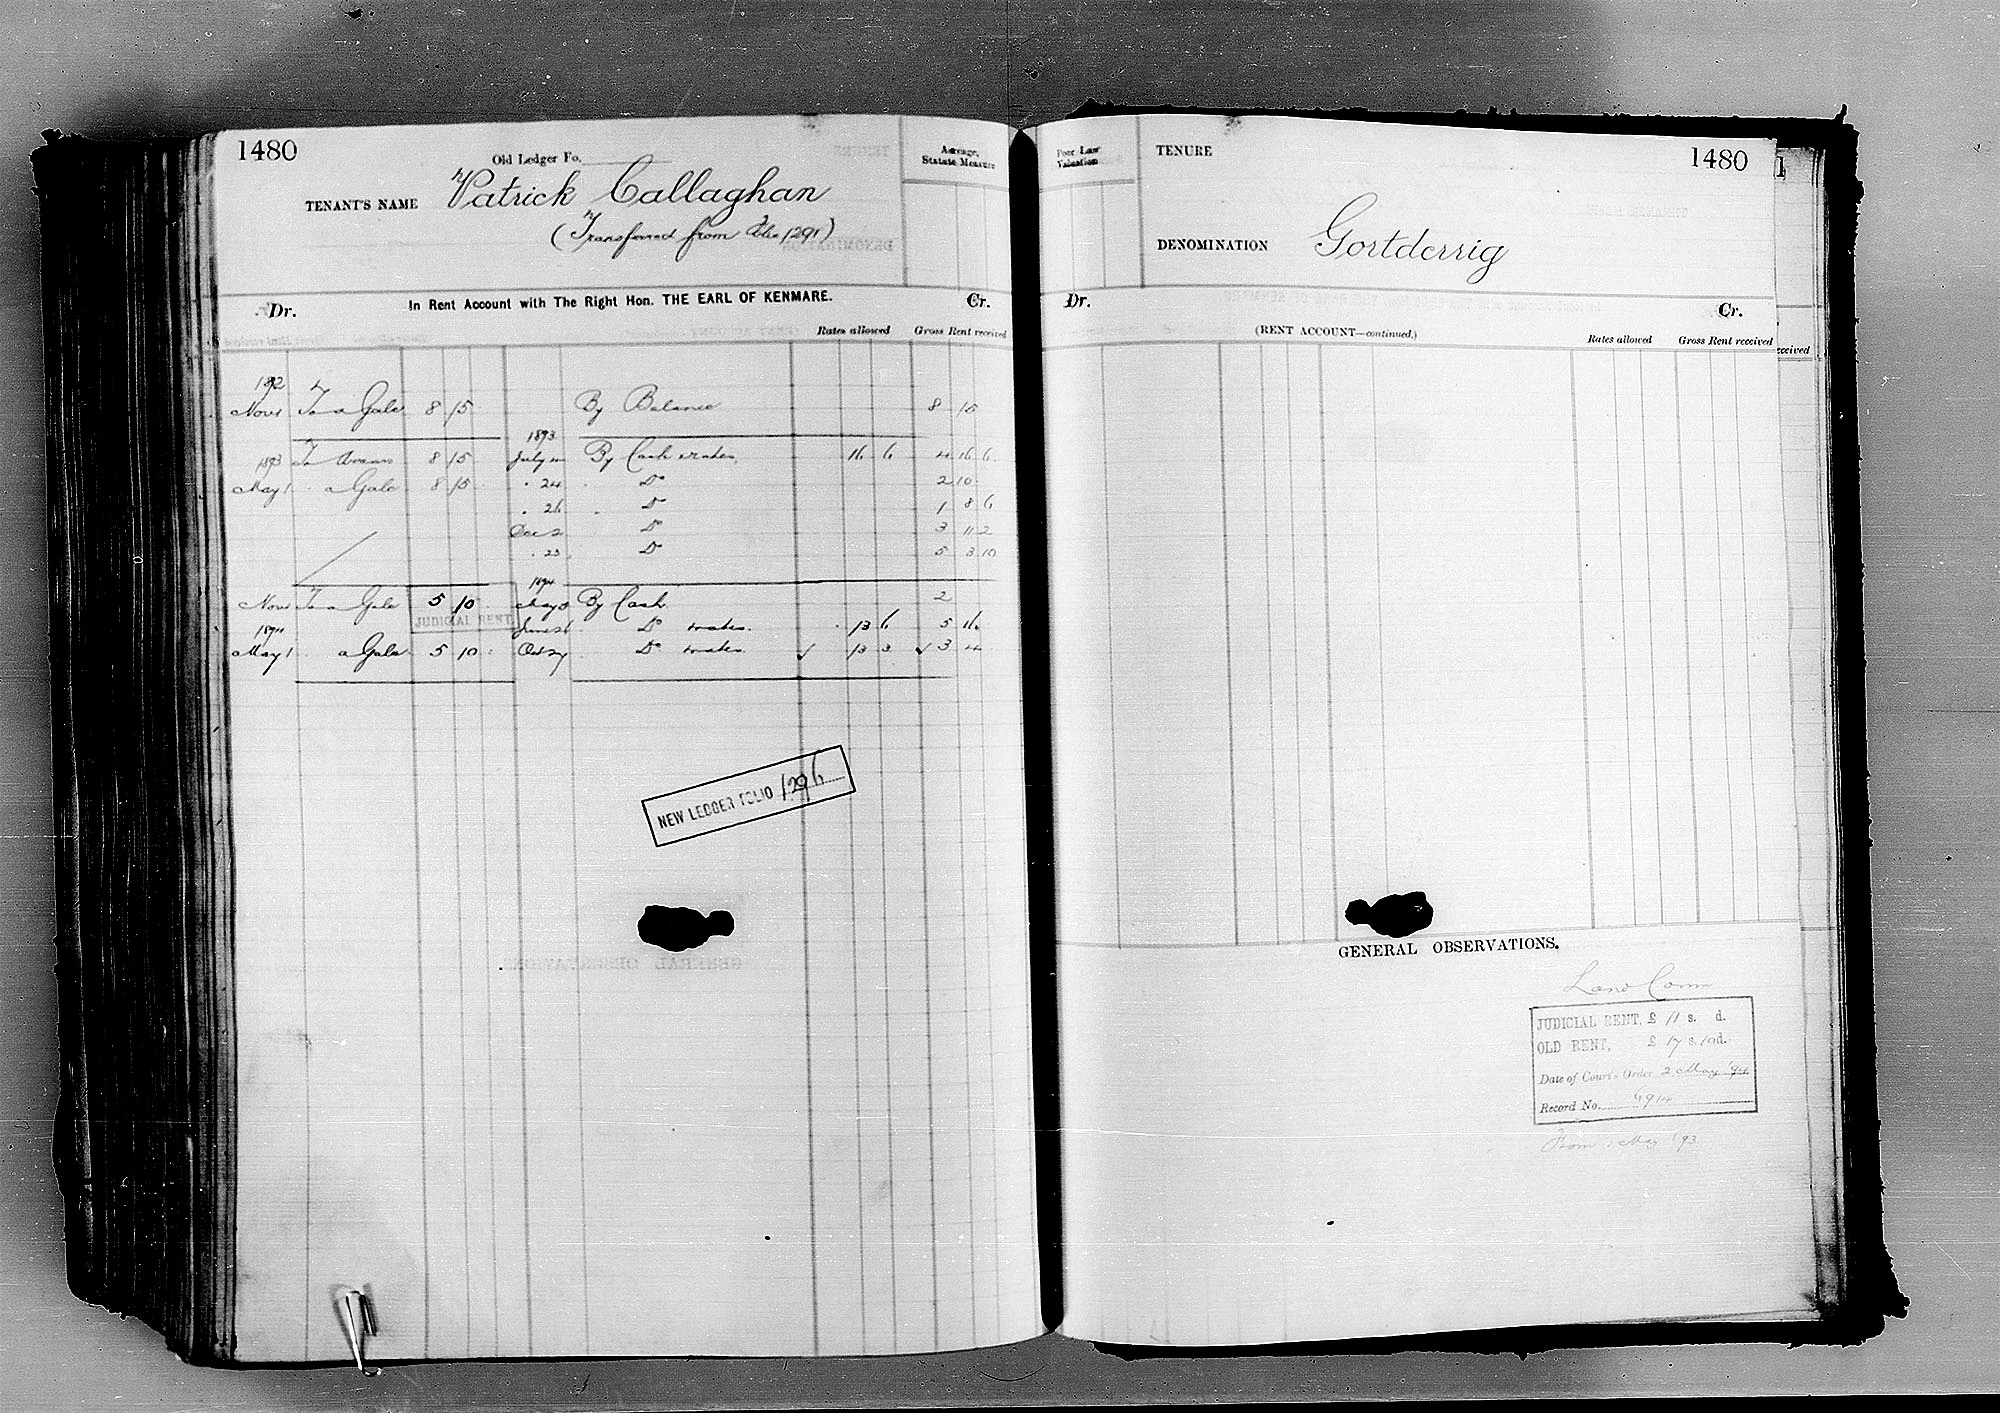 1480
Old Ledger Fo.
TENANT'S NAME Patrick Callaghan
(Transferred from Folio 1291)
Acreage, Statute Measure
Dr. In Rent Account with The Right Hon. THE EARL OF KENMARE. Cr.
Rates allowed Gross Rent received
1892
Nov 1 To a Gale 8 15 By Balance 8 15
1893
1893 To Arrears 8 15 July By Cash & rates 16 6 4 16 6
May 1 " a Gale 8 15 " 24 " Do 2 10
" 26 " Do 1 8 6
Dec 2 Do 3 11 2
" 23 Do 5 3 10
1894
Nov 1 To a Gale 5 10 May By Cash 2
JUDICIAL RENT
1894 June Do & rates 13 6 5 16
May 1 a Gale 5 10 Oct Do & rates 13 3 3 4
NEW LEDGER FOLIO 1296
Poor Law Valuation
TENURE
1480
DENOMINATION Gortderrig
Dr. Cr.
(RENT ACCOUNT—continued.)
Rates allowed Gross Rent received
GENERAL OBSERVATIONS.
Land Comm
JUDICIAL RENT, £ 11 s. d.
OLD RENT, £ 17 s. 10 d.
Date of Court's Order 2 May '94
Record No.
From 1 May '93